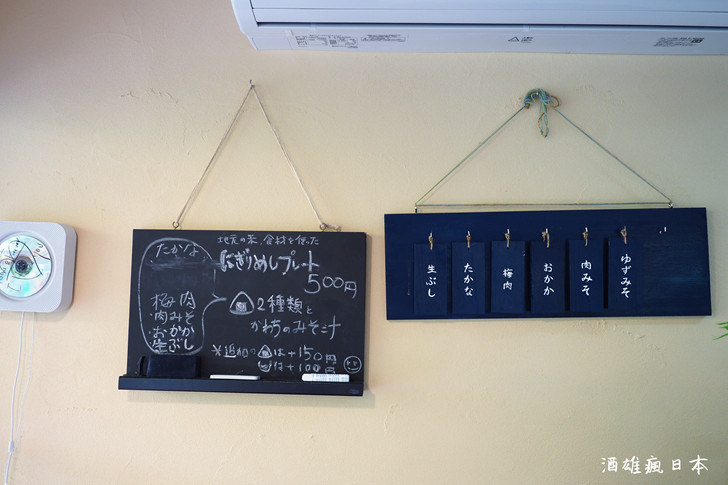 地元の米、食材を使った
にぎりめしプレート
500円
2種類と
かわちのみそ汁
※追加の は+150円
は+100円
・たかな
・梅肉
・肉みそ
・おかか
・生ぶし
生ぶし
たかな
梅肉
おかか
肉みそ
ゆずみそ
酒雄瘋日本